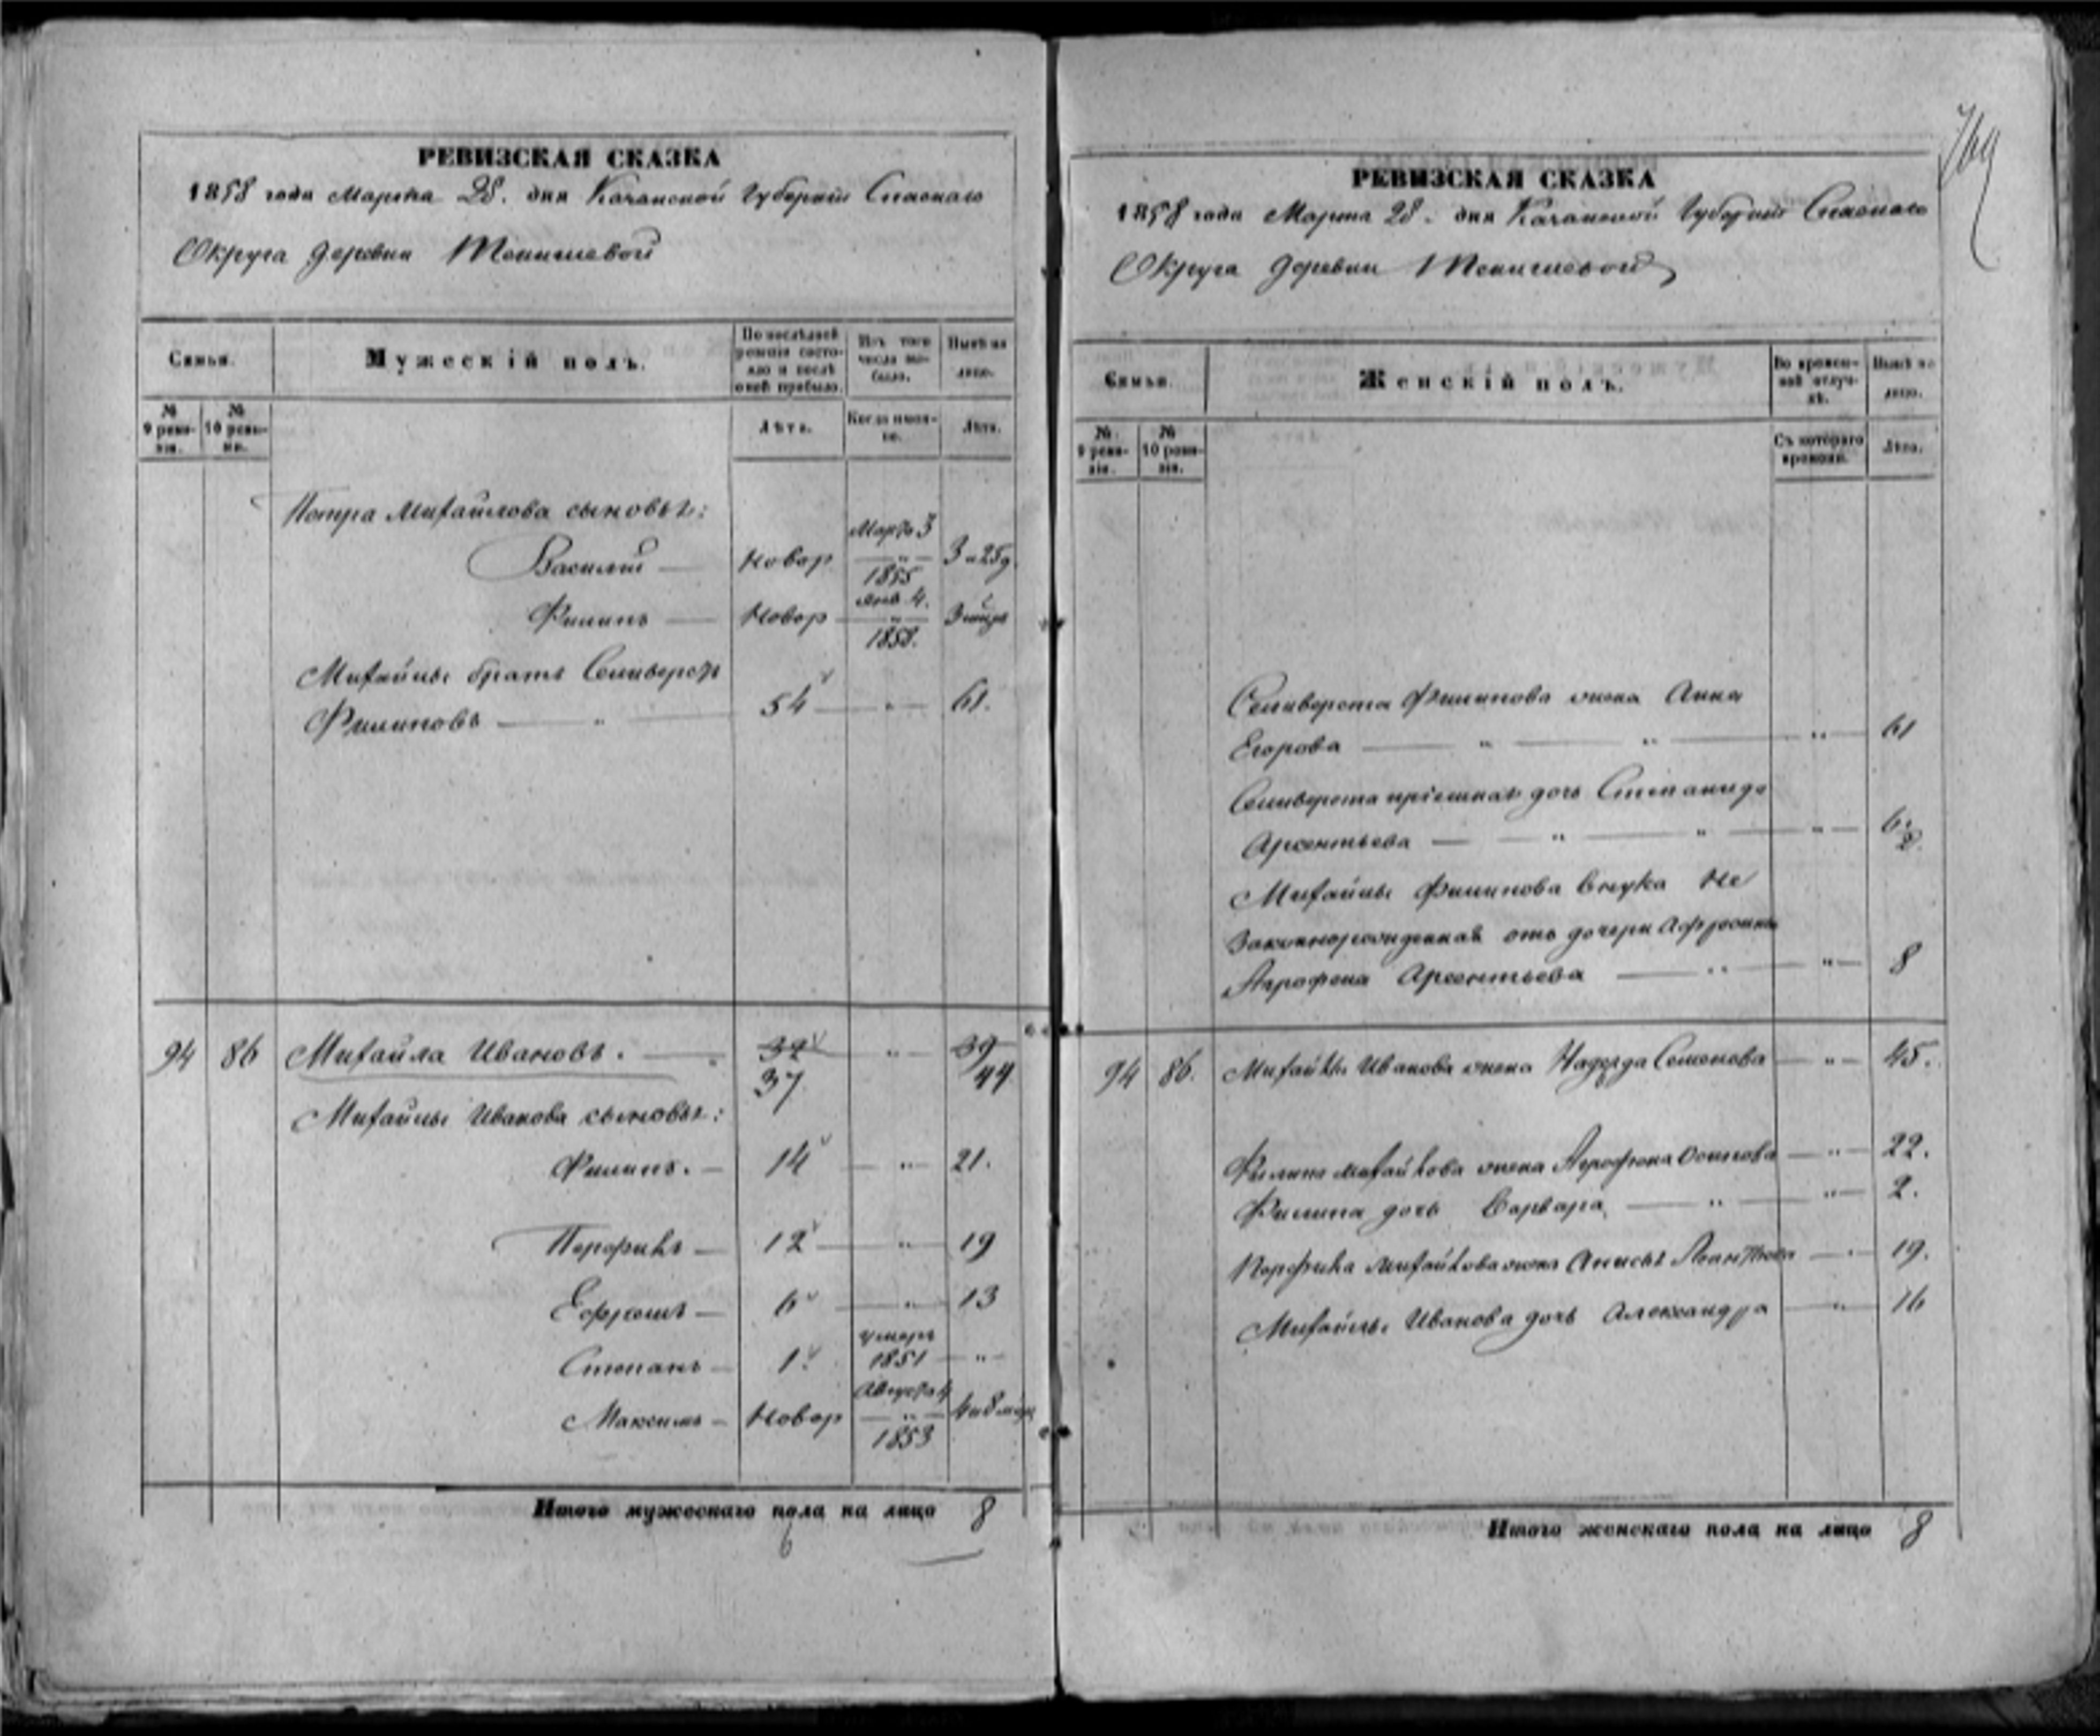 РЕВИЗСКАЯ СКАЗКА
1858 года Марта 28. дня Казанской Губернiи Спаскаго
Округа деревни Тенишевой
Семьи.
Мужескiй полъ.
По последней ревизiи состояло и послѣ оной прибыло.
Изъ того числа выбыло.
Нынѣ на лицо.
№ 9 ревизiи.
№ 10 ревизiи.
Лѣта.
Когда имянно.
Лѣта.
Петра Михайлова сыновья:
Василiй — Новор Марта 3 1855 3 и 25 д
Филипъ — Новор Янв 4. 1858. 3
Михайлы братъ Селиверстъ
Филиповъ — " — 54 — " — 61.
94 86 Михайла Ивановъ. — " 32 " 39
37 44
Михайлы Иванова сыновья:
Филипъ. — 14 — " — 21.
Порфилъ — 12 — " — 19
Ефремъ — 6 — " — 13
Степанъ — 1. умеръ 1851 — " —
Максимъ — Новор Августа 4 1853 4 и 8 мец
Итого мужескаго пола на лицо 8
6
769
РЕВИЗСКАЯ СКАЗКА
1858 года Марта 28. дня Казанской Губернiи Спаскаго
Округа деревни Тенишевой
Семьи.
Женскiй полъ.
Во временной отлучкѣ.
Нынѣ на лицо.
№ 9 ревизiи.
№ 10 ревизiи.
Съ котораго времени.
Лѣта.
Селиверста Филипова жена Анна
Егорова — " — " — " — 61
Селиверста прiемная дочь Степанида
Арсентьева — " — " — " — 6.
2
Михайлы Филипова внука не
законнорожденная отъ дочери Афросиньи
Агрофена Арсентьева — " — " — 8
94 86. Михайлы Иванова жена Надежда Семенова — " — 45.
Филипа Михайлова жена Агрофена Осипова — " — 22.
Филипа дочь Варвара — " — " — 2.
Порфила Михайлова жена Анисья — " — 19.
Михайлы Иванова дочь Александра — " — 16
Итого женскаго пола на лицо 8